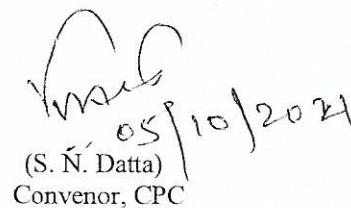 05/10/2021
(S. N. Datta)
Convenor, CPC